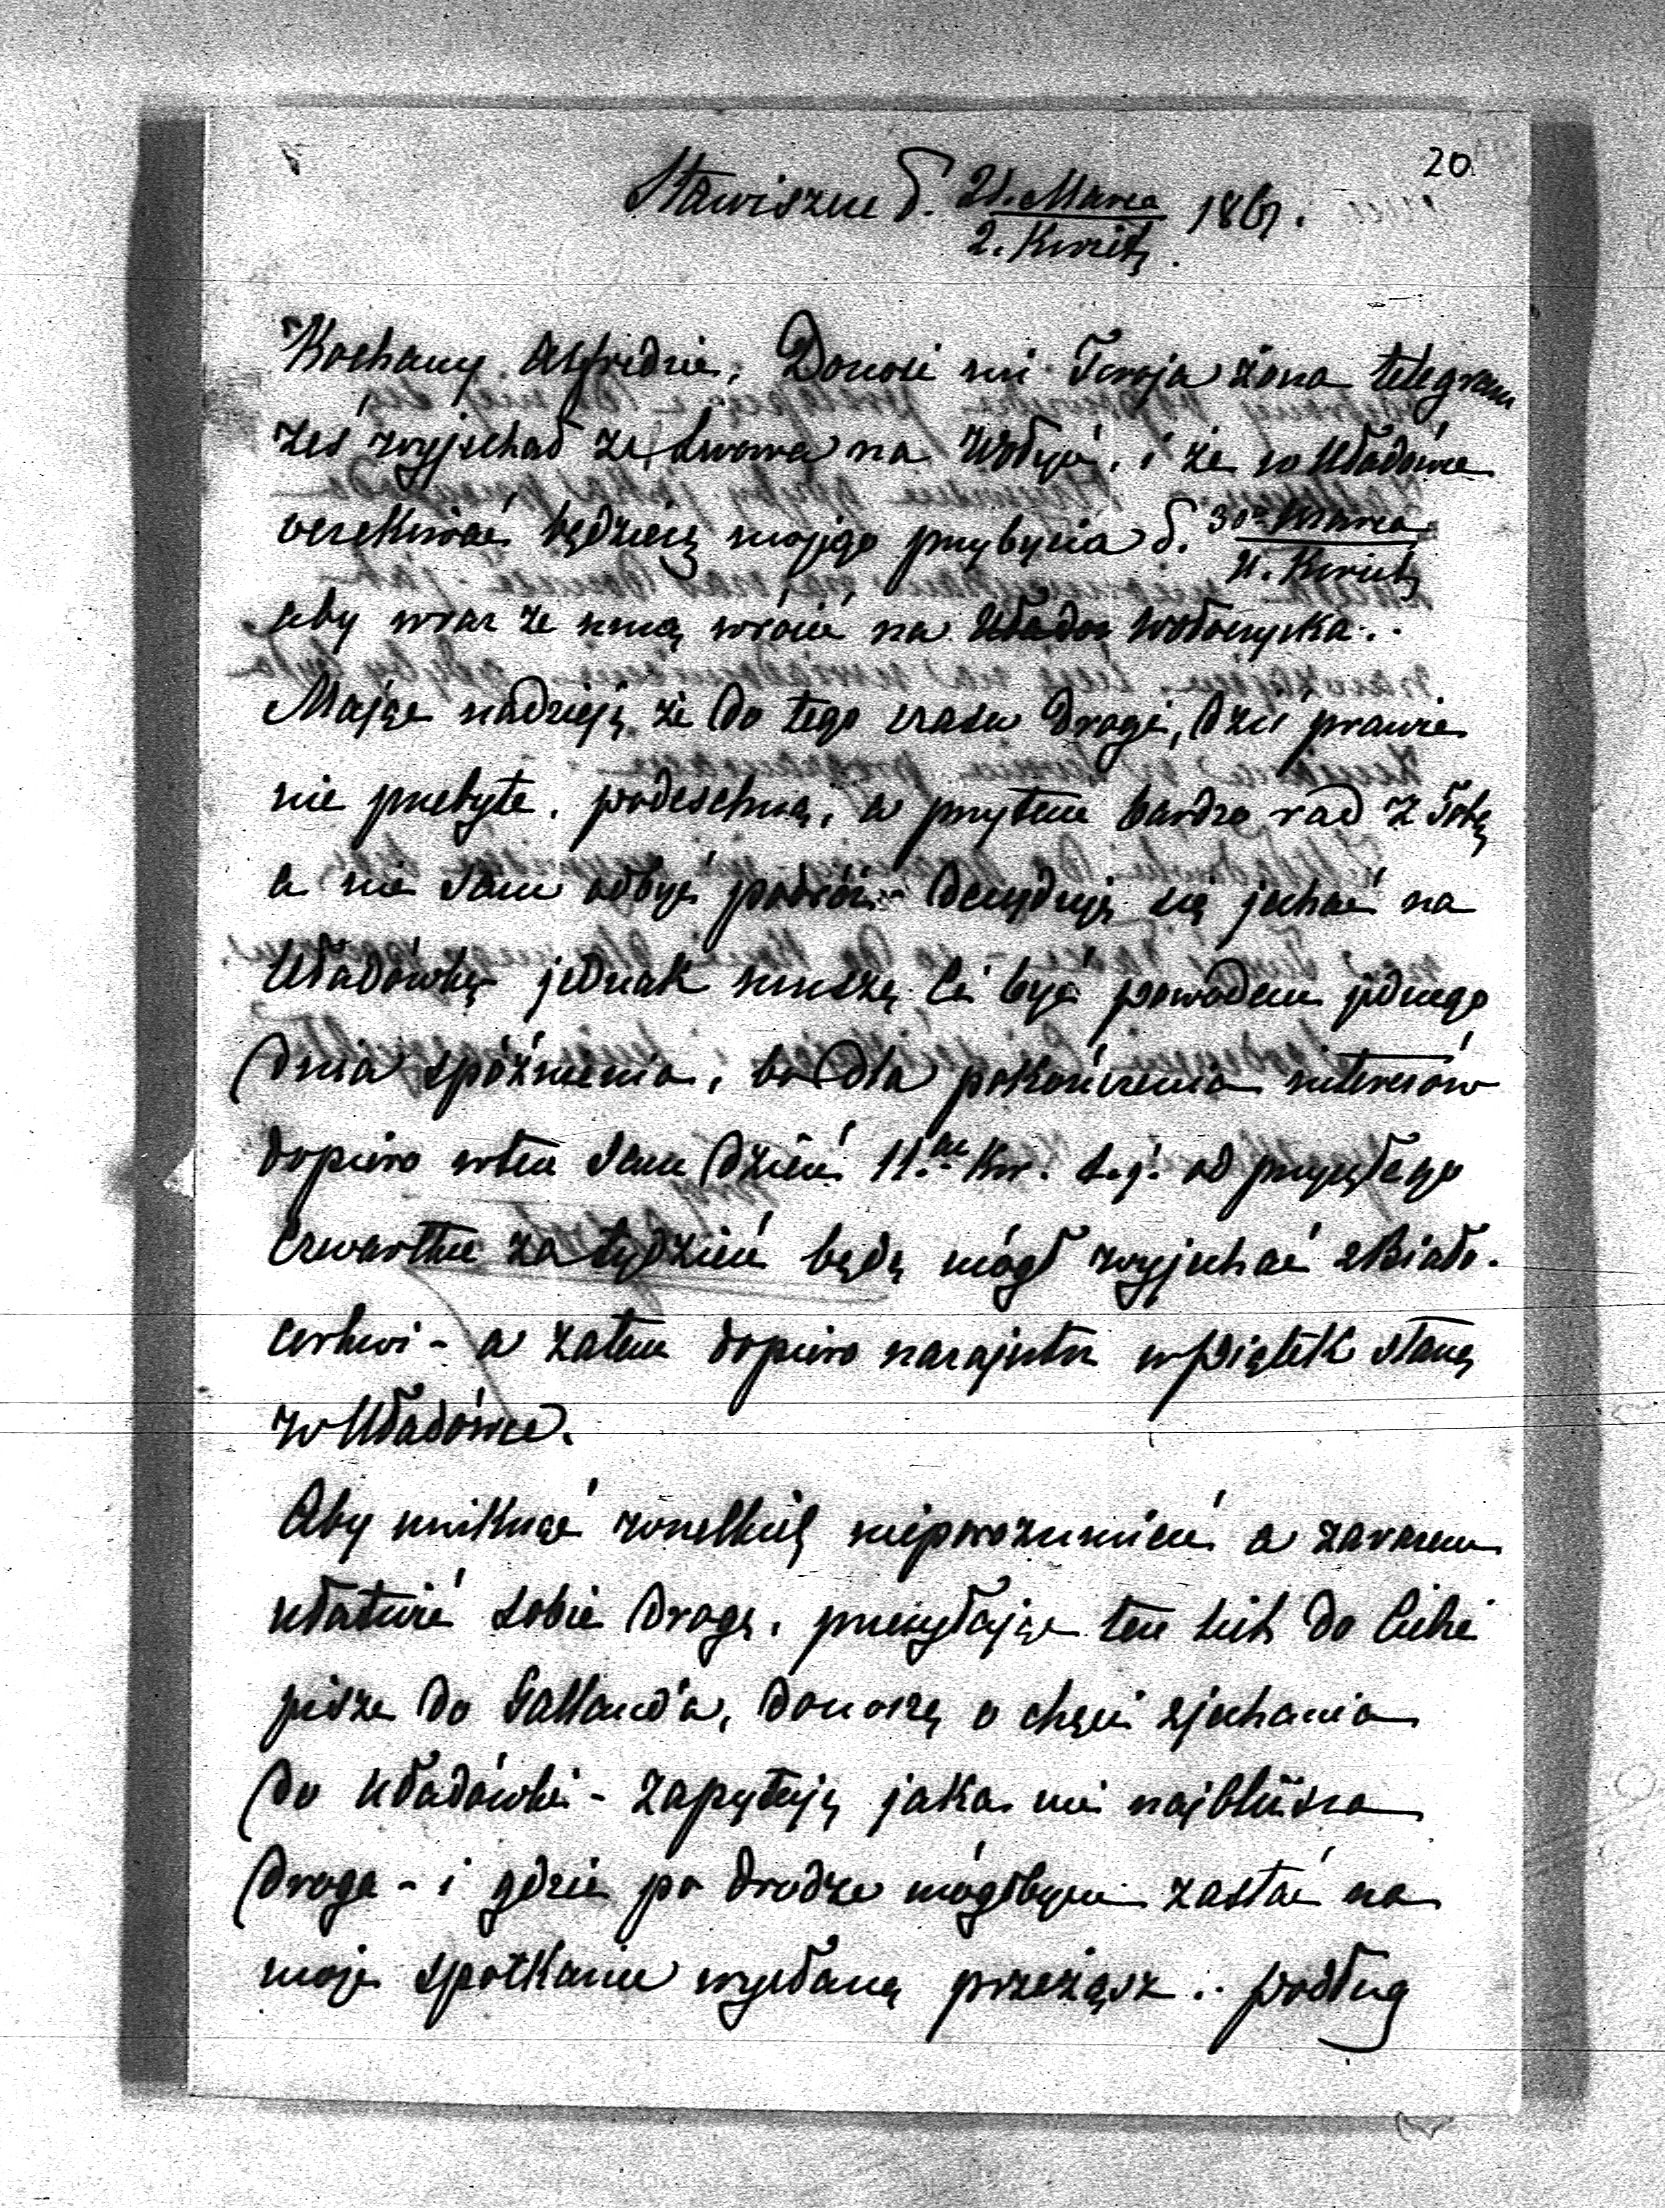 20
Stawiszcze d. 21. Marca 1867.
2. Kwiet.
Kochany Alfredzie, Donosi mi Twoja żona telegram
żeś wyjechał ze Lwowa na Wołyń, i że w Uładówce
oczekiwać będziesz mojego przybycia d. 30o Marca
11. Kwiet.
aby wraz ze mną wrócić na Uładó Wołoczyska..
Mając nadzieję że do tego czasu drogi, dziś prawie
nie przebyte, podeschną, a przytem bardzo rad z Tobą
a nie sam odbyć podróż - decyduję się jechać na
Uładówkę jednak muszę Ci być powodem jednego
dnia spóźnienia, bo dla pokończenia interesów
dopiero w ten sam dzień 11.go Kw. t.j. od przyszłego
czwartku za tydzień będę mógł wyjechać z Biało-
cerkwi - a zatem dopiero nazajutrz w piątek stanę
w Uładówce.
Aby uniknąć wszelkich nieporozumień a zarazem
ułatwić sobie drogę, przesyłając ten list do Ciebie
piszę do Gallanda, donoszę o chęci zjechania
do Uładówki - zapytuję jaka mi najbliższa
droga - i gdzie po drodze mógłbym zastać na
moje spotkanie wysłaną przeżącz.. podług